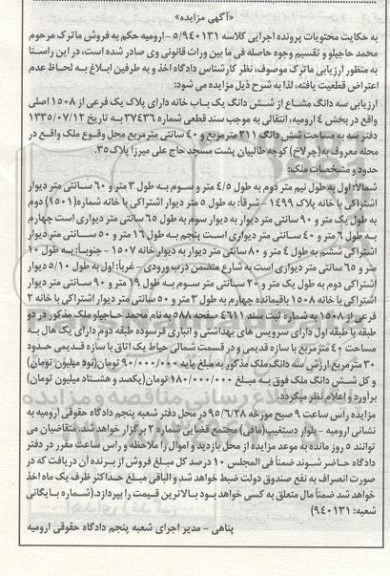 «آگهی مزایده»
به حکایت محتویات پرونده اجرایی کلاسه ۵/۹۴۰۱۳۱ - ارومیه حکم به فروش ماترک مرحوم
محمد حاجیلو و تقسیم وجوه حاصله فی ما بین وراث قانونی وی صادر شده است، در این راستا
به منظور ارزیابی ماترک موصوف، نظر کارشناس دادگاه اخذ و به طرفین ابلاغ به لحاظ عدم
اعتراض قطعیت یافته، لذا به شرح ذیل مزایده می شود:
ارزیابی سه دانگ مشاع از شش دانگ یک باب خانه دارای پلاک یک فرعی از ۱۵۰۸ اصلی
واقع در بخش ۴ ارومیه، انتقالی به موجب سند قطعی شماره ۳۷۴۳۶ به تاریخ ۱۳۳۵/۰۷/۱۲
دفتر سه به مساحت شش دانگ ۲۱۱ مترمربع و ۴۰ سانتی مترمربع محل وقوع ملک واقع در
محله معروف به(چرلاخ) کوچه طالبیان پشت مسجد حاج علی میرزا پلاک ۳۵.
حدود و مشخصات ملک:
شمالا: اول به طول نیم متر دوم به طول ۴/۵ متر و سوم به طول ۳ متر و ۶۰ سانتی متر دیوار
اشتراکی با خانه پلاک ۱۴۹۹ - شرقا: به طول ۵ متر دیوار اشتراکی با خانه شماره(۱۵۰۱) دوم
به طول یک متر و ۹۰ سانتی متر دیوار به دیوار سوم به طول ۶۵ سانتی متر دیواری است چهارم
به طول ۶ متر و ۴۰ سانتی متر دیواری است پنجم به طول ۱۶ متر و ۵۰ سانتی متر دیوار
اشتراکی ششم به طول ۴ متر و ۸۰ سانتی متر دیوار به دیوار خانه ۱۵۰۷ - جنوبا: به طول ۱۰
متر و ۶۵ سانتی متر دیواری است به شارع متضمن درب ورودی - غربا: اول به طول ۵/۱۰ دیوار
اشتراکی دوم به طول یک متر و ۲۰ سانتی متر سوم به طول ۱۹ متر و ۹۰ سانتی متر دیوار
اشتراکی با خانه ۱۵۰۸ باقیمانده چهارم به طول ۳ متر و ۵۰ سانتی متر دیوار اشتراکی با خانه ۲
فرعی از ۱۵۰۸ به شماره ثبت سند ۴۶۱۱ صفحه ۵۸۸ به نام محمد حاجیلو ملک مذکور در دو
طبقه با طبقه اول دارای سرویس های بهداشتی و انباری فرسوده طبقه دوم دارای یک هال به
مساحت ۴۰ مترمربع با سازه قدیمی و در قسمت شمالی حیاط یک اتاق با سازه قدیمی حدود
۳۰ مترمربع ارزش سه دانگ ملک مذکور به مبلغ پایه ۹۰/۰۰۰/۰۰۰ تومان(نود میلیون تومان)
و کل شش دانگ ملک فوق به مبلغ ۱۸۰/۰۰۰/۰۰۰ تومان(یکصد و هشتاد میلیون تومان)
برآورد و اعلام نظر میگردد.
مزایده راس ساعت ۹ صبح مورخه ۹۵/۶/۲۸ در محل دفتر شعبه پنجم دادگاه حقوقی ارومیه به
نشانی ارومیه - بلوار دستغیب(مافی) مجتمع قضایی شماره ۲ برگزار خواهد شد، متقاضیان می
توانند ۵ روز مانده به موعد مزایده از محل بازدید و اموال را ملاحظه و راس ساعت مقرر در دفتر
دادگاه حاضر شوند ضمناً فی المجلس ۱۰ درصد کل مبلغ فروش از برنده آن دریافت که در
صورت انصراف به نفع صندوق دولت ضبط خواهد شد و الباقی مبلغ حداکثر ظرف یک ماه اخذ
خواهد شد ضمناً مال متعلق به کسی خواهد بود بالاترین قیمت را بپردازد.(شماره بایگانی
شعبه: ۹۴۰۱۳۱)
پناهی - مدیر اجرای شعبه پنجم دادگاه حقوقی ارومیه